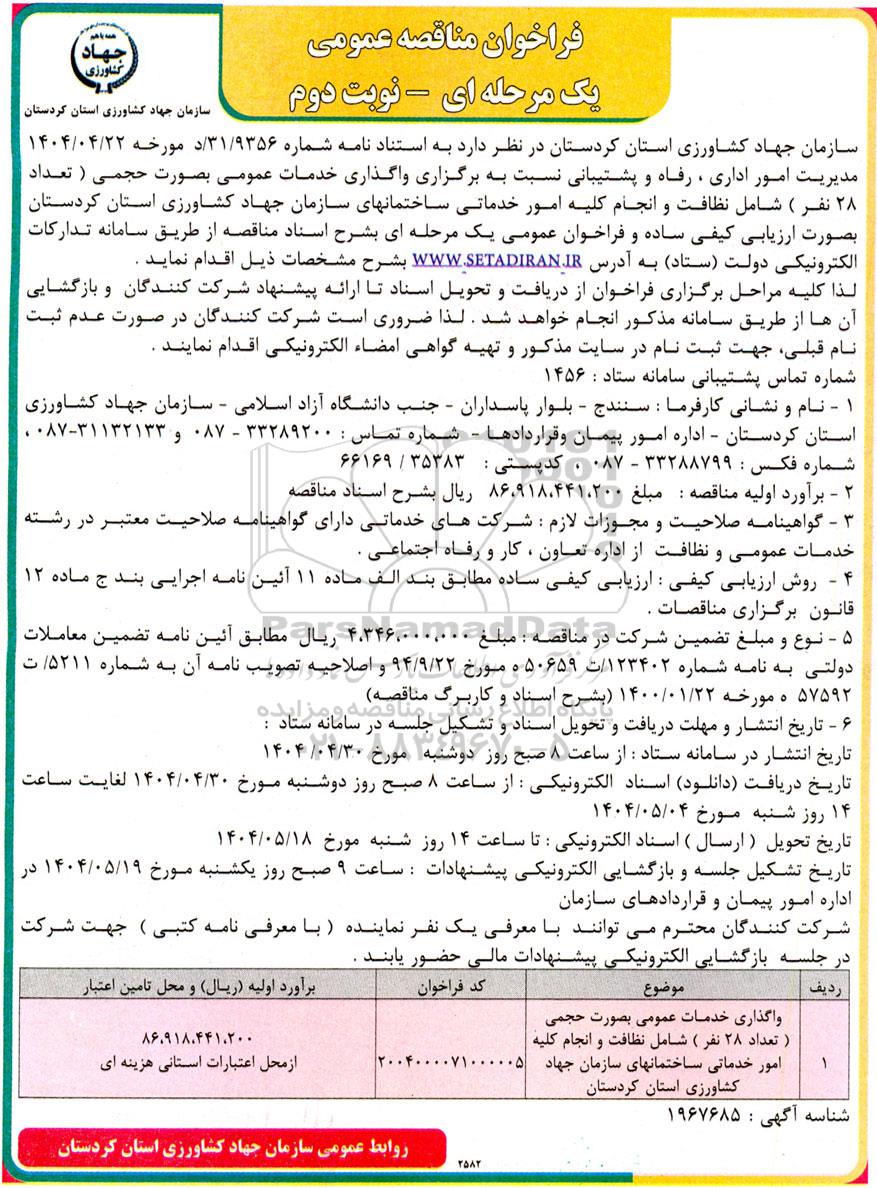 فراخوان مناقصه عمومی
یک مرحله ای – نوبت دوم
همه با هم
جهاد
کشاورزی
سازمان جهاد کشاورزی استان کردستان
سازمان جهاد کشاورزی استان کردستان در نظر دارد به استناد نامه شماره ۳۱/۹۳۵۶/د مورخه ۱۴۰۴/۰۴/۲۲
مدیریت امور اداری ، رفاه و پشتیبانی نسبت به برگزاری واگذاری خدمات عمومی بصورت حجمی ( تعداد
۲۸ نفر ) شامل نظافت و انجام کلیه امور خدماتی ساختمانهای سازمان جهاد کشاورزی استان کردستان
بصورت ارزیابی کیفی ساده و فراخوان عمومی یک مرحله ای بشرح اسناد مناقصه از طریق سامانه تدارکات
الکترونیکی دولت (ستاد) به آدرس WWW.SETADIRAN.IR بشرح مشخصات ذیل اقدام نماید .
لذا کلیه مراحل برگزاری فراخوان از دریافت و تحویل اسناد تا ارائه پیشنهاد شرکت کنندگان و بازگشایی
آن ها از طریق سامانه مذکور انجام خواهد شد . لذا ضروری است شرکت کنندگان در صورت عدم ثبت
نام قبلی، جهت ثبت نام در سایت مذکور و تهیه گواهی امضاء الکترونیکی اقدام نمایند .
شماره تماس پشتیبانی سامانه ستاد : ۱۴۵۶
۱ - نام و نشانی کارفرما : سنندج - بلوار پاسداران - جنب دانشگاه آزاد اسلامی - سازمان جهاد کشاورزی
استان کردستان - اداره امور پیمان وقراردادها - شماره تماس : ۳۳۲۸۹۲۰۰ - ۰۸۷ و ۳۱۱۳۲۱۳۳-۰۸۷ ،
شماره فکس : ۳۳۲۸۸۷۹۹ - ۰۸۷ ، کدپستی : ۳۵۳۸۳ / ۶۶۱۶۹
۲ - برآورد اولیه مناقصه : مبلغ ۸۶،۹۱۸،۴۴۱،۲۰۰ ریال بشرح اسناد مناقصه
۳ - گواهینامه صلاحیت و مجوزات لازم : شرکت های خدماتی دارای گواهینامه صلاحیت معتبر در رشته
خدمات عمومی و نظافت از اداره تعاون ، کار و رفاه اجتماعی .
۴ - روش ارزیابی کیفی : ارزیابی کیفی ساده مطابق بند الف ماده ۱۱ آئین نامه اجرایی بند ج ماده ۱۲
قانون برگزاری مناقصات .
۵ - نوع و مبلغ تضمین شرکت در مناقصه : مبلغ ۴،۳۴۶،۰۰۰،۰۰۰ ریال مطابق آئین نامه تضمین معاملات
دولتی به نامه شماره ۱۲۳۴۰۲/ت ۵۰۶۵۹ ه مورخ ۹۴/۹/۲۲ و اصلاحیه تصویب نامه آن به شماره ۵۲۱۱/ ت
۵۷۵۹۲ ه مورخه ۱۴۰۰/۰۱/۲۲ (بشرح اسناد و کاربرگ مناقصه)
۶ - تاریخ انتشار و مهلت دریافت و تحویل اسناد و تشکیل جلسه در سامانه ستاد :
تاریخ انتشار در سامانه ستاد : از ساعت ۸ صبح روز دوشنبه مورخ ۱۴۰۴/۰۴/۳۰
تاریخ دریافت (دانلود) اسناد الکترونیکی : از ساعت ۸ صبح روز دوشنبه مورخ ۱۴۰۴/۰۴/۳۰ لغایت ساعت
۱۴ روز شنبه مورخ ۱۴۰۴/۰۵/۰۴
تاریخ تحویل ( ارسال ) اسناد الکترونیکی : تا ساعت ۱۴ روز شنبه مورخ ۱۴۰۴/۰۵/۱۸
تاریخ تشکیل جلسه و بازگشایی الکترونیکی پیشنهادات : ساعت ۹ صبح روز یکشنبه مورخ ۱۴۰۴/۰۵/۱۹ در
اداره امور پیمان و قراردادهای سازمان
شرکت کنندگان محترم می توانند با معرفی یک نفر نماینده ( با معرفی نامه کتبی ) جهت شرکت
در جلسه بازگشایی الکترونیکی پیشنهادات مالی حضور یابند .
ردیف موضوع کد فراخوان برآورد اولیه (ریال) و محل تامین اعتبار
واگذاری خدمات عمومی بصورت حجمی
( تعداد ۲۸ نفر ) شامل نظافت و انجام کلیه ۸۶،۹۱۸،۴۴۱،۲۰۰
۱ امور خدماتی ساختمانهای سازمان جهاد ۲۰۰۴۰۰۰۰۷۱۰۰۰۰۰۵ ازمحل اعتبارات استانی هزینه ای
کشاورزی استان کردستان
شناسه آگهی : ۱۹۶۷۶۸۵
روابط عمومی سازمان جهاد کشاورزی استان کردستان
۲۵۸۲
ParsNamadData
پایگاه اطلاع رسانی مناقصه و مزایده
۰۲۱-۸۸۳۴۹۶۷۰-۵